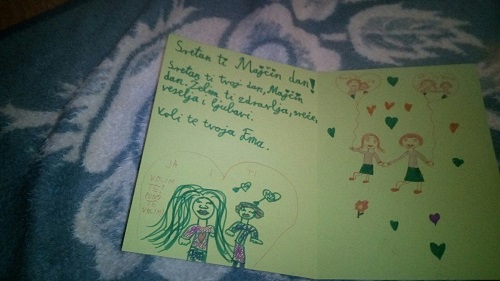 Sretan ti Majčin dan!
Sretan ti tvoj dan, Majčin
dan. Želim ti zdravlja, sreće,
veselja i ljubavi.
Voli te tvoja Ema.
JA
I
TI
VOLIM
TE
VOLIM